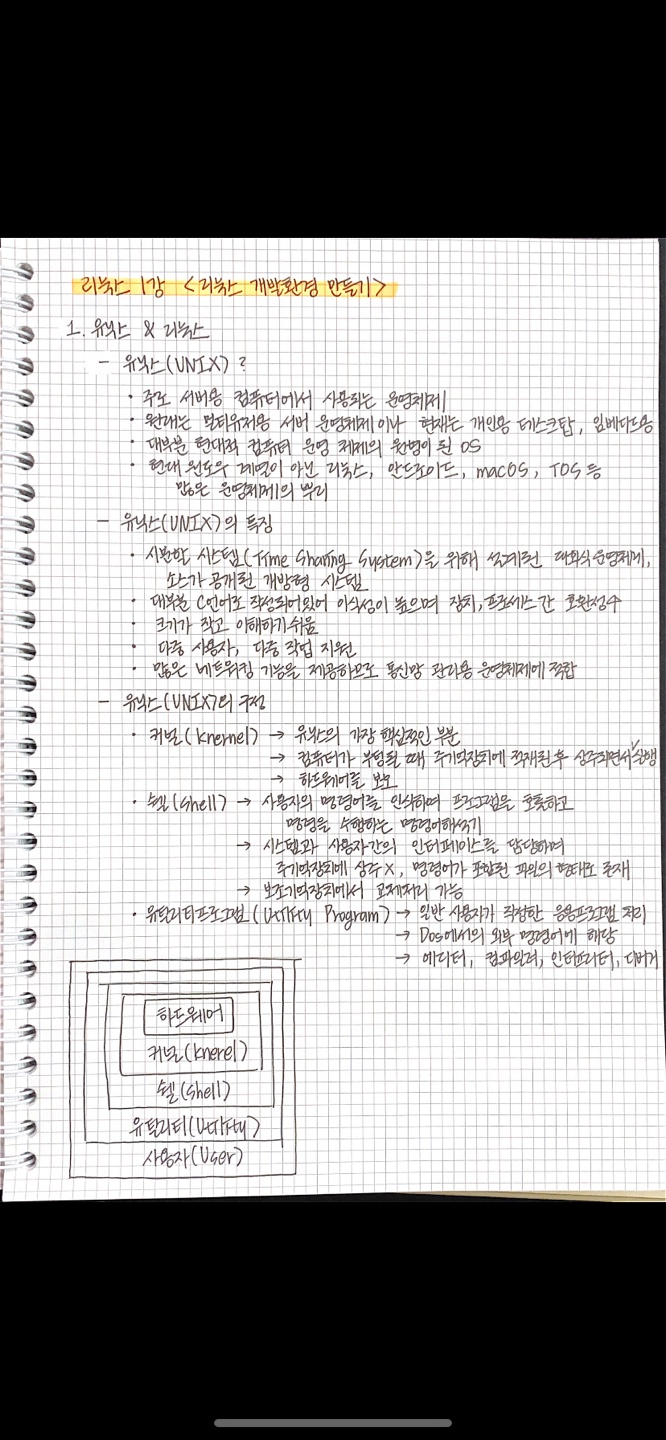 리눅스 1강 <리눅스 개발환경 만들기>
1. 유닉스 & 리눅스
- 유닉스(UNIX) ?
· 주로 서버용 컴퓨터에서 사용되는 운영체제
· 원래는 멀티유저용 서버 운영체제이나 현재는 개인용 데스크탑, 임베디드용
· 대부분 현대적 컴퓨터 운영 체제의 원형이 된 OS
· 현대 윈도우 계열이 아닌 리눅스, 안드로이드, macOS, TOS 등
많은 운영체제의 뿌리
- 유닉스(UNIX)의 특징
· 시분할 시스템(Time Sharing System)을 위해 설계된 대화식 운영체제,
소스가 공개된 개방형 시스템
· 대부분 C언어로 작성되어있어 이식성이 높으며 장치, 프로세스 간 호환성↑
· 크기가 작고 이해하기쉬움
· 다중 사용자, 다중 작업 지원
· 많은 네트워킹 기능을 제공하므로 통신망 관리용 운영체제에 적합
- 유닉스(UNIX)의 구성
· 커널(Knernel) → 유닉스의 가장 핵심적인 부분
→ 컴퓨터가 부팅될 때 주기억장치에 적재된 후 상주하면서 실행
→ 하드웨어를 보호
· 쉘(Shell) → 사용자의 명령어를 인식하여 프로그램을 호출하고
명령을 수행하는 명령어해석기
→ 시스템과 사용자간의 인터페이스를 담당하며
주기억장치에 상주X, 명령어가 포함된 파일의 형태로 존재
→ 보조기억장치에서 교체처리 가능
· 유틸리티프로그램(Utility Program) → 일반 사용자가 작성한 응용프로그램 처리
→ Dos에서의 외부 명령어에 해당
→ 에디터, 컴파일러, 인터프리터, 디버거
하드웨어
커널(Knerel)
쉘(Shell)
유틸리티(Utility)
사용자(User)